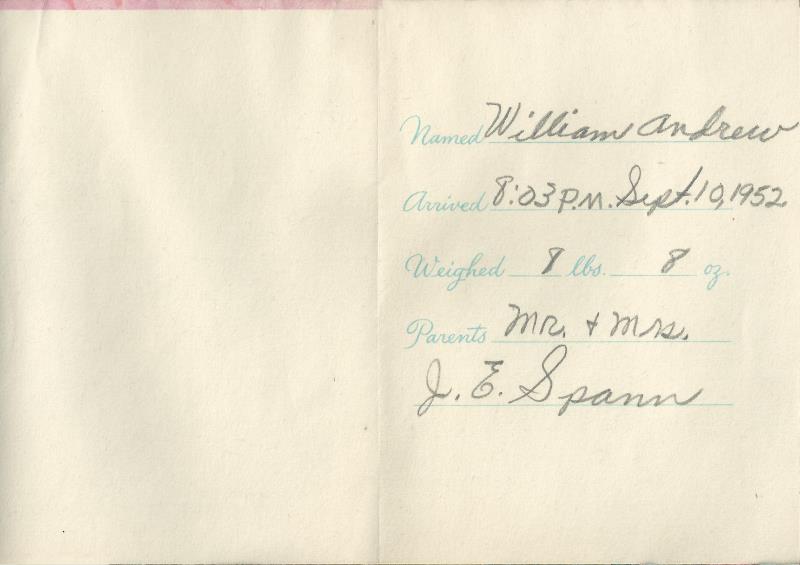 Named William Andrew
Arrived 8:03 P.M. Sept. 10, 1952
Weighed 8 lbs. 8 oz.
Parents Mr. + Mrs.
J. E. Spann